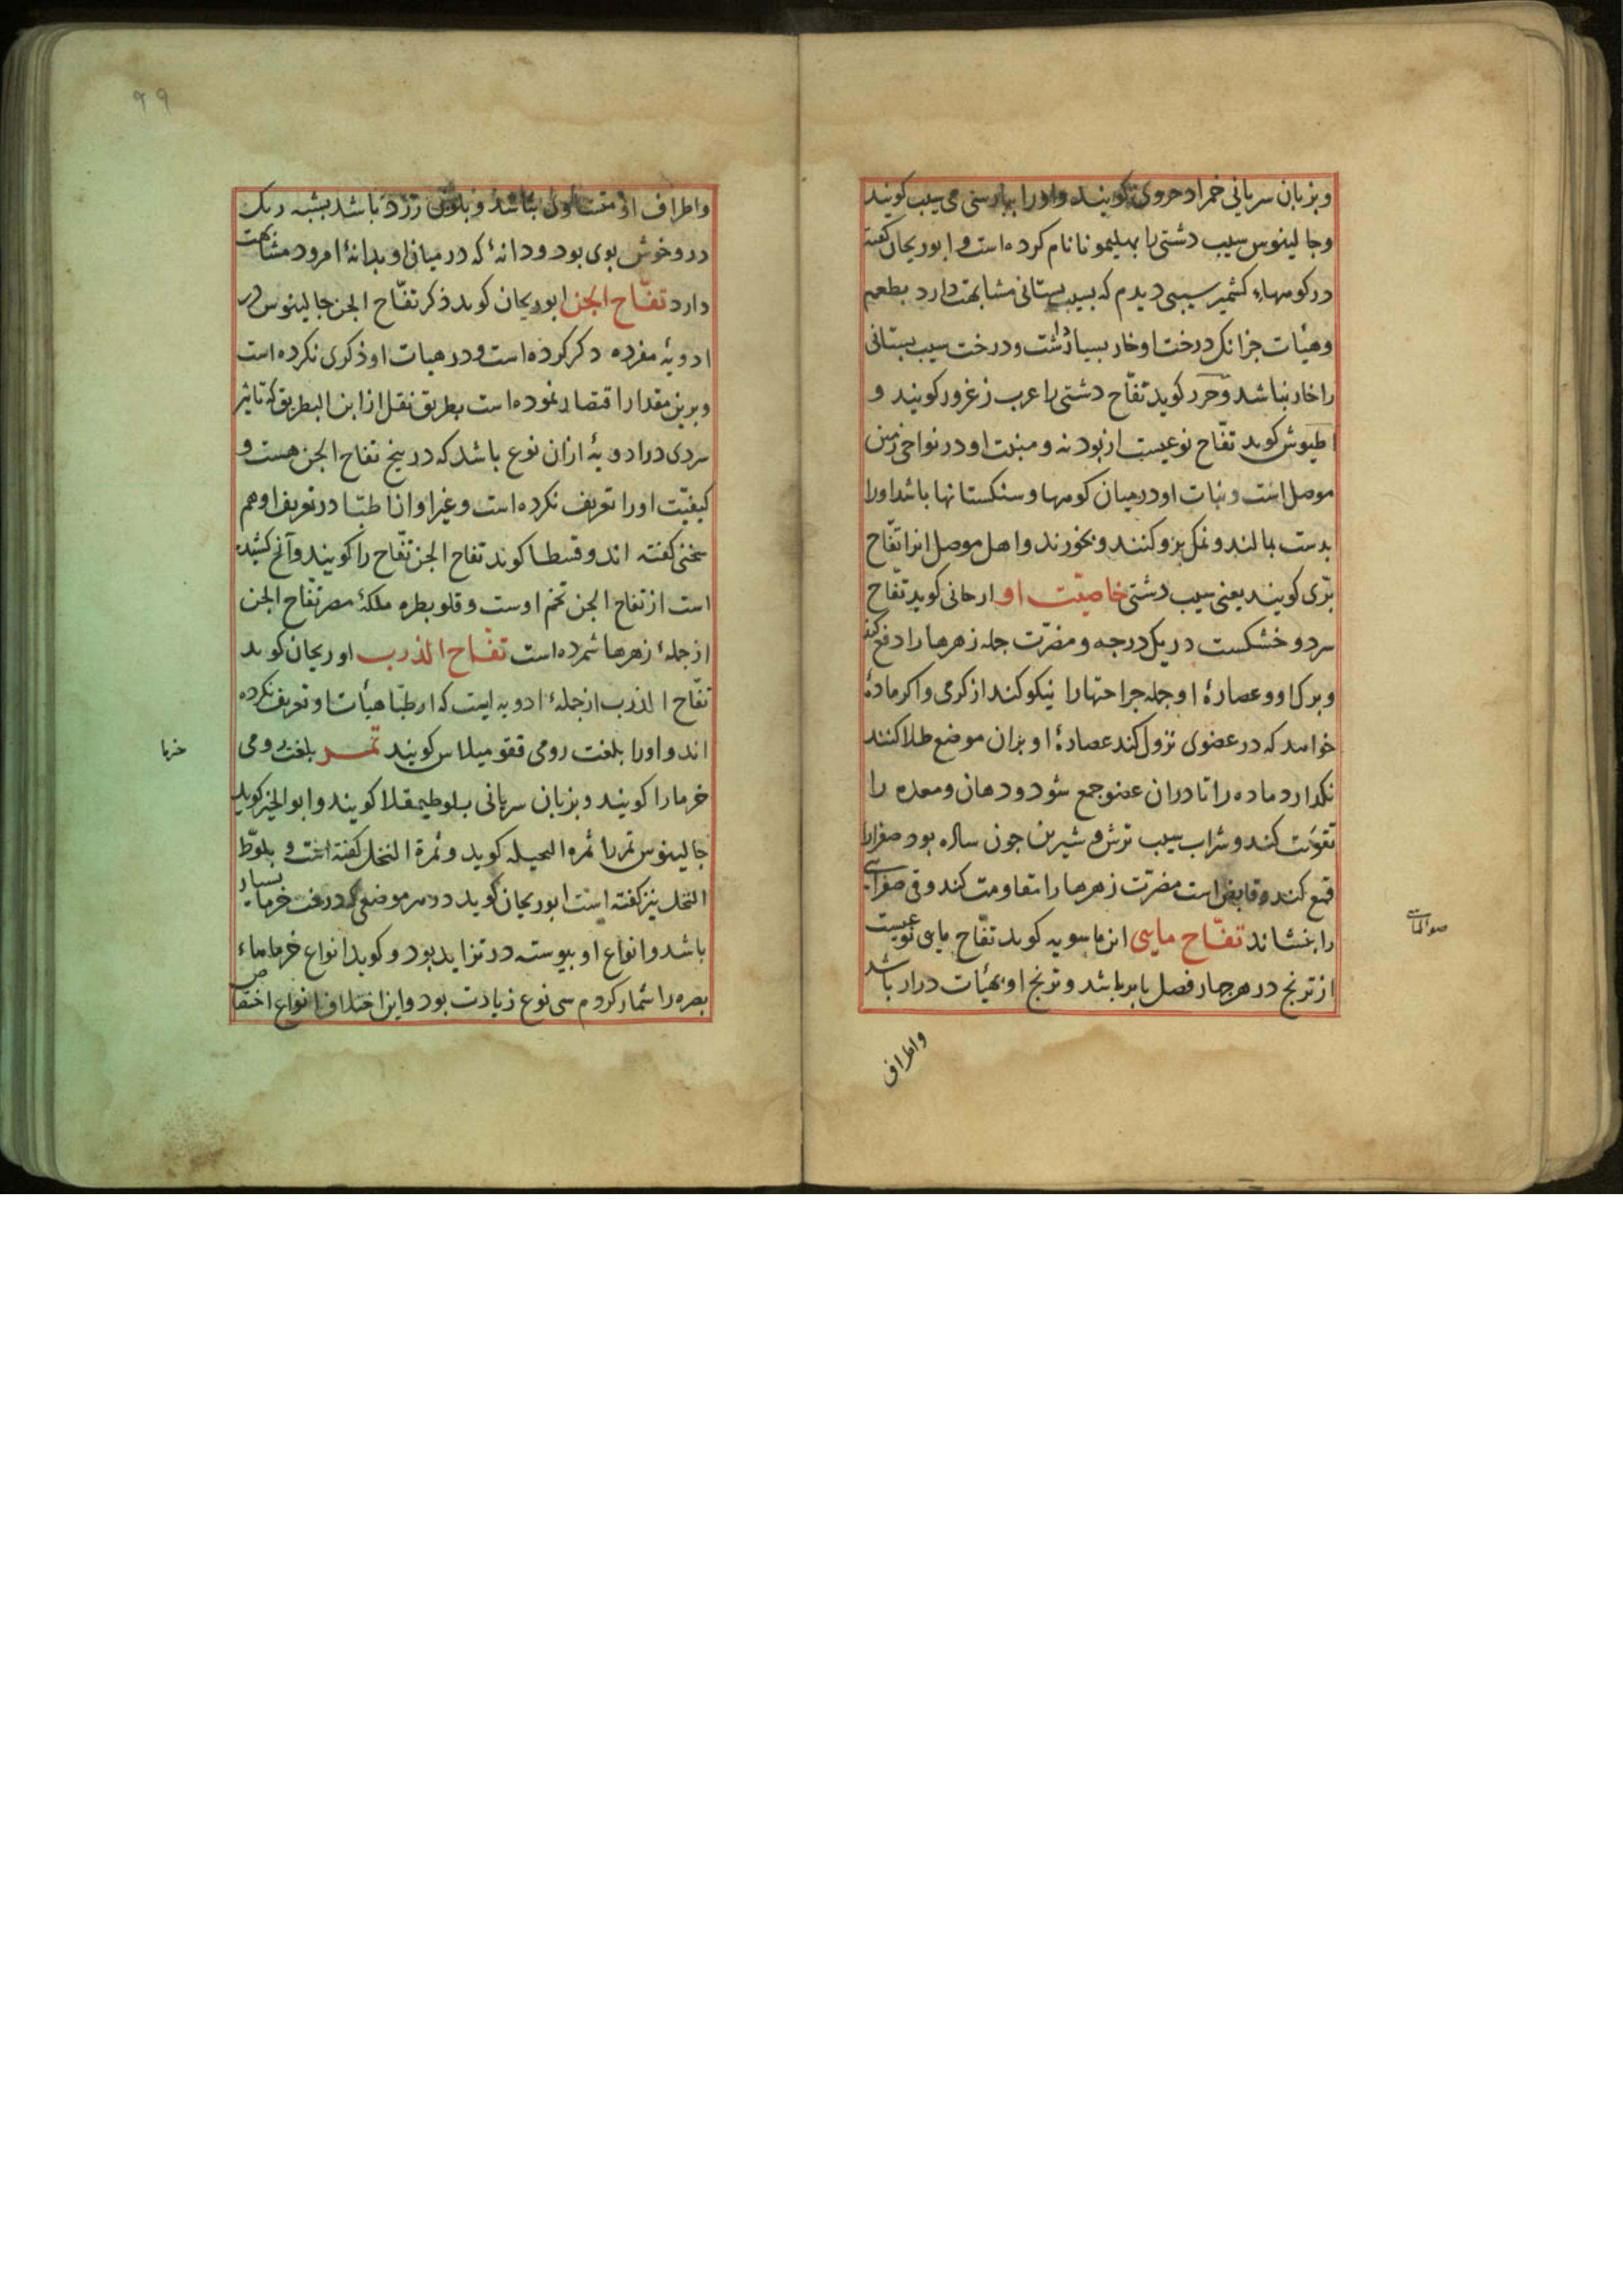 وبزبان سریانی خمراد حروی کویند واورا بپارسی می سیب کویند
وجالینوس سیب دشتی را بهلیمونا نام کرده است و ابوریحان کفته
در کوههاء کشمیر سیبی دیدم که بسیب بستانی مشابهت دارد بطعم
وهیأت جزانک درخت او خار بسیار داشت ودرخت سیب بستانی
را خار نباشد وحرر کوید تفّاح دشتی را عرب زغرور کویند و
اطیوش کوید تفّاح نوعیست از بودنه ومنبت او در نواحی زمین
موصل است ونبات او در میان کوهها وسنکستانها باشد اورا
بدست بمالند ونمک برو کنند وبخورند واهل موصل انرا تفّاح
برّی کویند یعنی سیب دشتی خاصیّت او ارحانی کوید تفّاح
سرد وخشکست در یک درجه ومضرّت جمله زهرها را دفع کند
وبرک او وعصارهٔ او جمله جراحتها را نیکو کند از کرمی واکر مادهٔ
خواهد که در عضوی نزول کند عصارهٔ او بران موضع طلا کنند
نکذارد ماده را تا دران عضو جمع شود ودهان ومعده را
تقویت کند وشراب سیب ترش و شیرین جون ساله بود صفرا را
قمع کند وقابض است مضرّت زهرها را مقاومت کند وقی صفراسی
را بنشاند تفّاح مایی ابن ماسویه کوید تفّاح مایی نوعیست
از ترنج در هرجهار فصل بابر باشد وترنج او بهیأت دراز باشد
واطراف
واطراف او متساوی نباشد وبلون زرد باشد بشبه رنک
درو خوش بوی بود ودانهٔ که در میان او بدانهٔ امرود مشابهت
دارد تفّاح الجن ابوریحان کوید ذکر تفّاح الجن جالینوس در
ادویهٔ مفرده ذکر کرده است ودر هیات او ذکری نکرده است
وبرین مقدار اقتصار نموده است بطریق نقل از ابن البطریق که تاثیر
سردی در ادویهٔ ازان نوع باشد که در بیخ تفاح الجن هست و
کیفیّت اورا تعریف نکرده است وغیر او از اطبّا در تعریف او هم
سخنی کفته اند وقسطا کوید تفاح الجن تفّاح را کویند وآنچ کشیده
است از تفاح الجن تخم اوست وقلوبطره ملکهٔ مصر تفّاح الجن
از جملهٔ زهرها شمرده است تفّاح الذرب اوریحان کوید
تفّاح الذرب از جملهٔ ادویه ایست که اطبّا هیأت او تعریف نکرده
اند واورا بلغت رومی ققومیلاس کویند تمر بلغت رومی
خرما را کویند وبزبان سریانی بلوطیمقلا کویند وابوالخیر کوید
جالینوس تمر را ثمره الحیله کوید وثمرة النخل کفته است و بلوّط
النخل نیز کفته است ابوریحان کوید در هر موضعی که درخت خرما بسیار
باشد وانواع او پیوسته در تزاید بود وکوید انواع خرماهاء
بصره را شمار کردم سی نوع زیادت بود واین اختلاف انواع اختصاص
خرما
۹۹